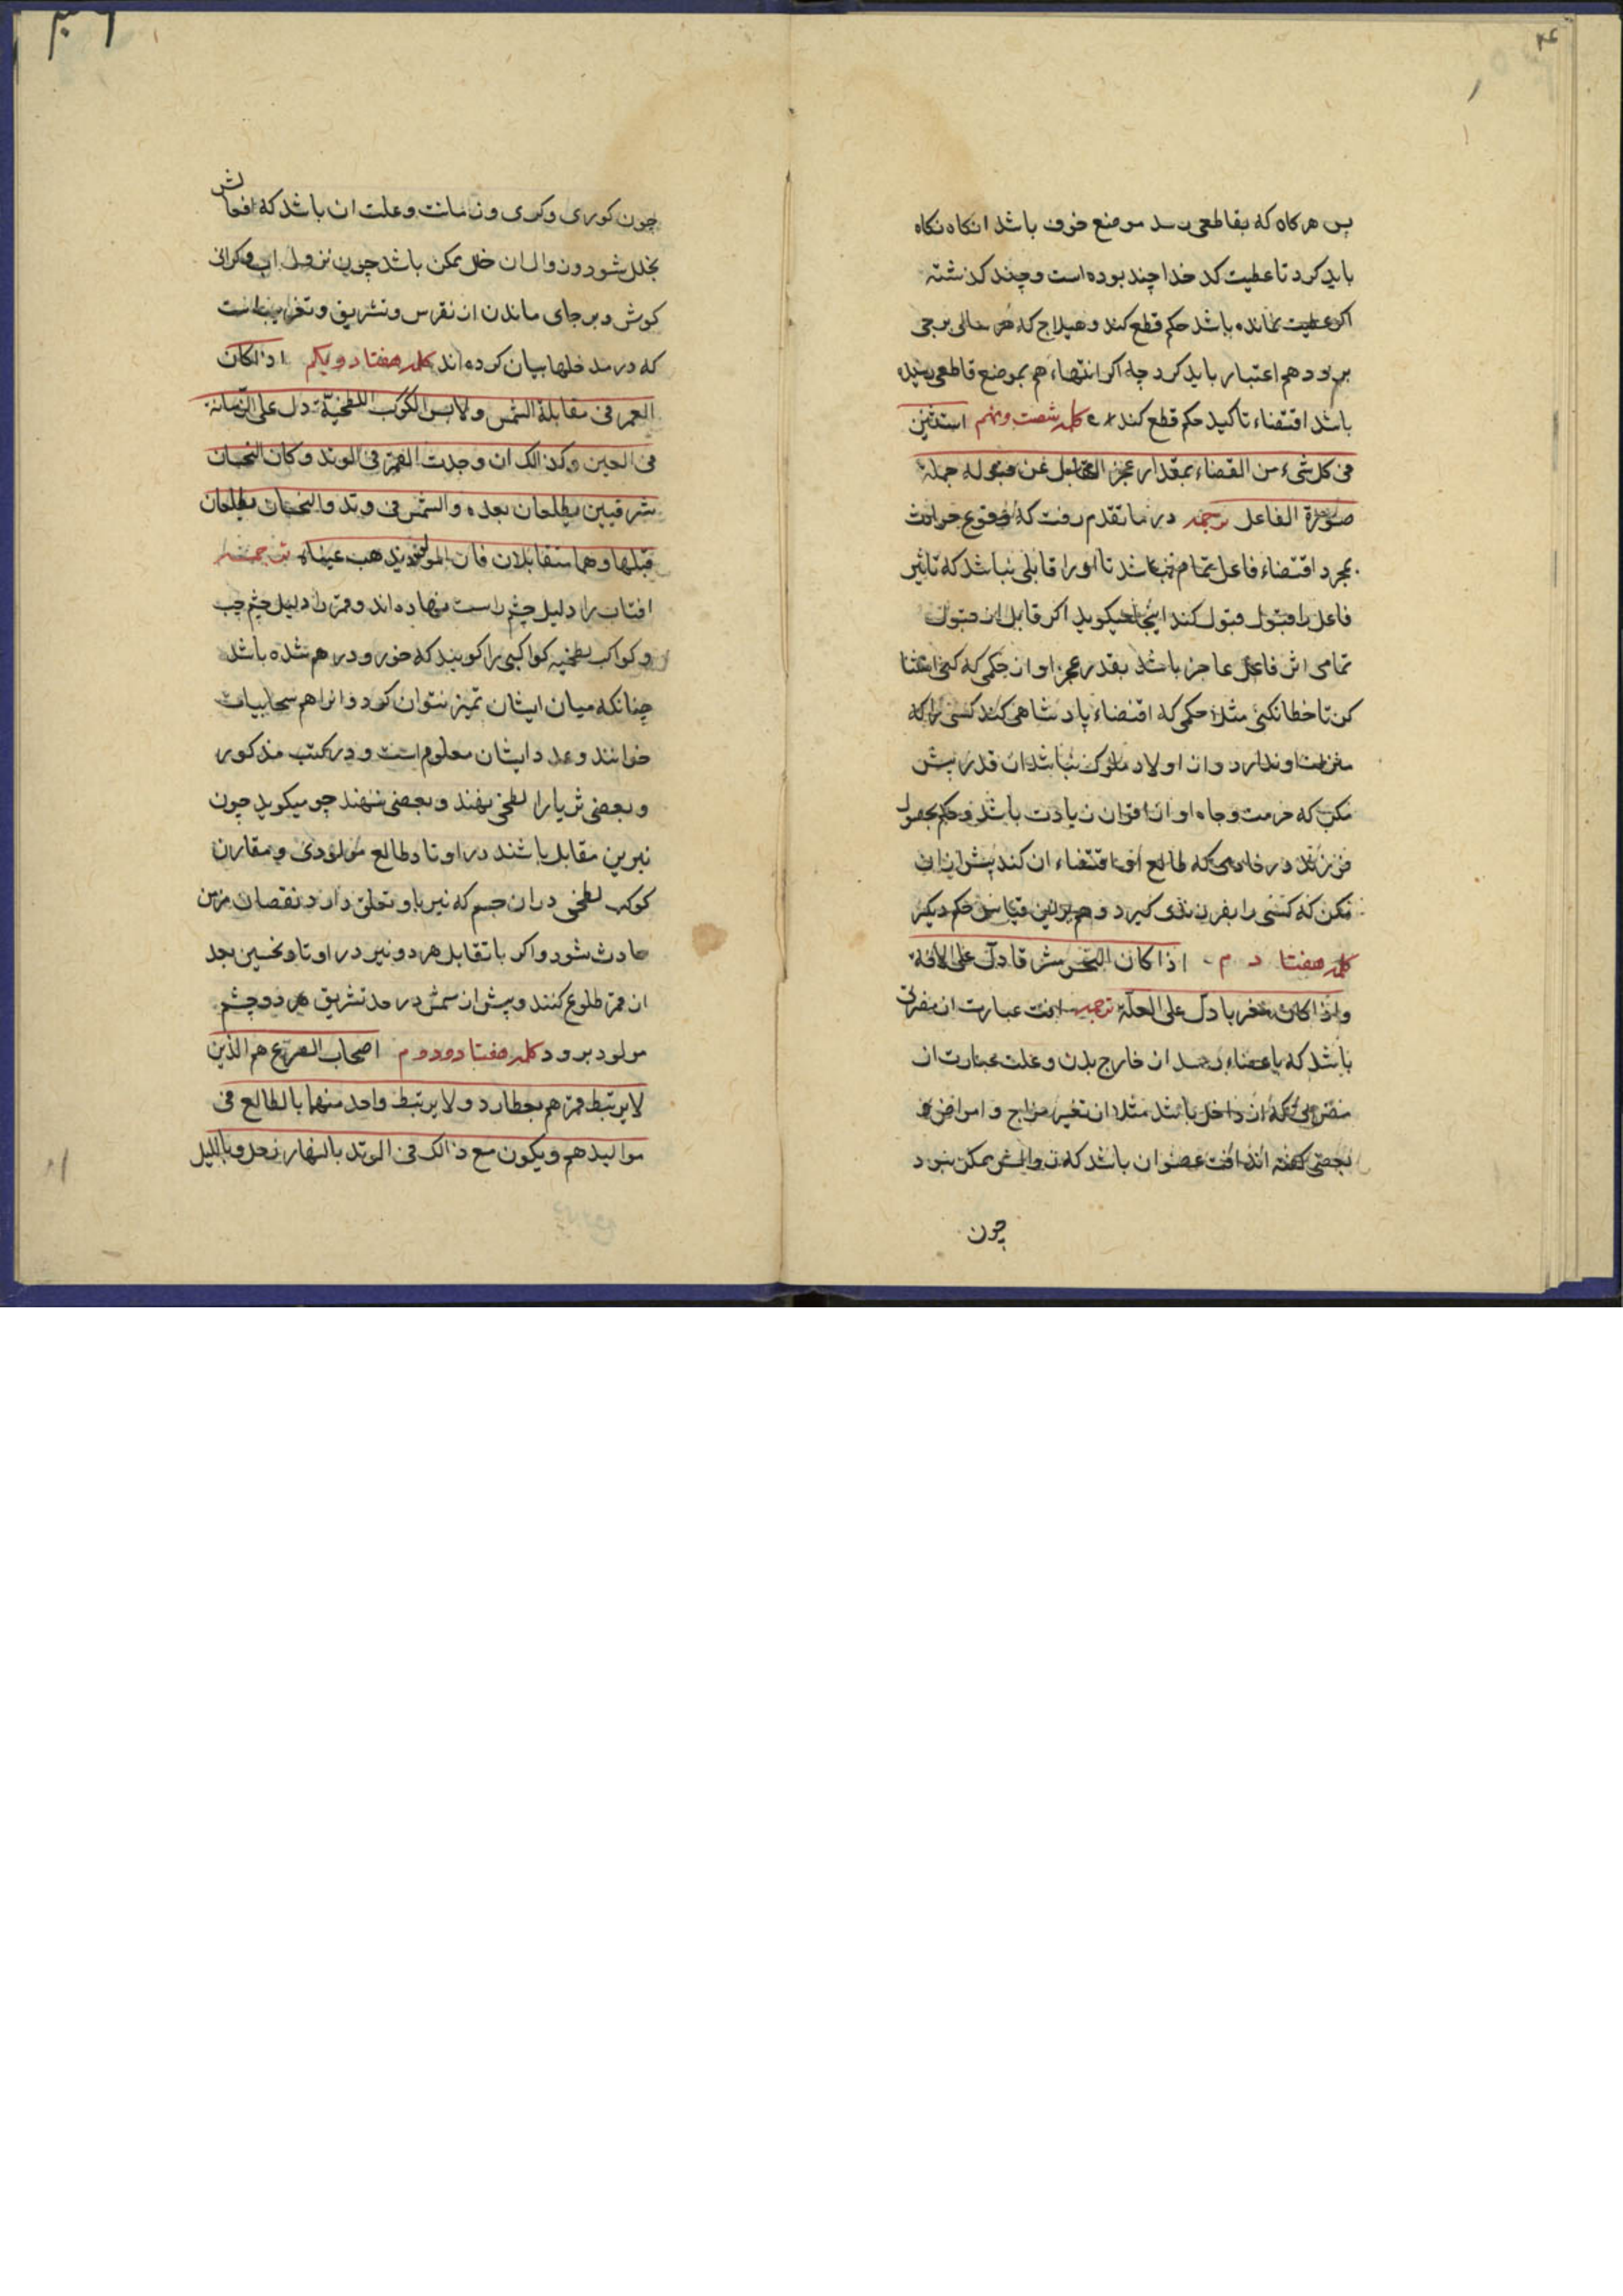 پس هر کاه که بقاطعی رسد موضع خوف باشد انکاه نکاه
باید کرد تا عطیت کد خدا چند بوده است و چند کذشته
اکر عطیت نمانده باشد حکم قطع کند و هیلاج که هر سالی برجی
برود هم اعتبار باید کرد چه اکر انتهاء هم بموضع قاطعی رسیده
باشد اقتضاء تاکید حکم قطع کند کلمه شصت و نهم استثنین
فی کل شیء من القضاء بمقدار عجز القابل عن قبوله جملة
صورة الفاعل ترجمه در ما تقدم رفت که وقوع حوادث
بمجرد اقتضاء فاعل تمام نباشد تا او را قابلی نباشد که تاثیر
فاعل را قبول کند اینجا میکوید اکر قابل از قبول
تمامی اثر فاعل عاجز باشد بقدر عجز او از حکمی که کنی استثنا
کن تا خطا نکنی مثلا حکمی که اقتضاء پادشاهی کند کسی را که
منزلت او ندارد و از اولاد ملوک نباشد ان قدر پیش
مکن که حرمت و جاه او از اقران زیادت باشد و حکم بحصول
فرزند در خادمی که طالع او اقتضاء ان کند پیش از ان
مکن که کسی را بفرزندی کیرد و هم برین قیاس حکم دیکر
کلمه هفتا د م اذا کان النحس مشرقا دل علی الافة
و اذا کان مغربا دل علی العلة ترجمه افت عبارت از مضرتی
باشد که باعضاء رسد از خارج بدن و علت عبارت از
مضرتی که از داخل باشد مثلا از تغیر مزاج و امراض و
بعضی کفته اند افت عضو ان باشد که زوالش ممکن نبود
چون
چون کوری و کری و زمانت و علت ان باشد که افعالش
بخلل شود و زوال ان خلل ممکن باشد چون نزول اب و کرانی
کوش و بر جای ماندن از نقرس و تشریق و تغریب انست
که در مدخلها بیان کرده اند کلمه هفتاد و یکم اذا کان
القمر فی مقابلة الشمس و لابس الکوکب اللطخیة دل علی الزمانة
فی العین و کذالک ان وجدت القمر فی الوتد و کان النحسان
شرقیین یطلعان بعده والشمس فی وتد والنحسان یطلعان
قبلها و هما متقابلان فان المولود یذهب عیناه ترجمه
افتاب را دلیل چشم راست نهاده اند و قمر را دلیل چشم چپ
و کواکب لطخیه کواکبی را کویند که خورد و درهم شده باشد
چنانکه میان ایشان تمیز نتوان کرد و انرا هم سحابیات
خوانند و عدد ایشان معلوم است و در کتب مذکور
و بعضی ثریا را لطخی نهند و بعضی ننهند چو میکوید چون
نیرین مقابل باشند در اوتاد طالع مولودی و مقارن
کوکب لطخی در ان جسم که نیر باو تعلق دارد نقصان مزمن
حادث شود و اکر با تقابل هر دو نیر در اوتاد نحسین بعد
از قمر طلوع کنند و پیش از شمس در حد تشریق هر دو چشم
مولود برود کلمه هفتاد و دوم اصحاب الصرع هم الذین
لا یرتبط قمرهم بعطارد و لا یرتبط واحد منهما بالطالع فی
موالیدهم و یکون مع ذالک فی الوتد بالنهار زحل و باللیل